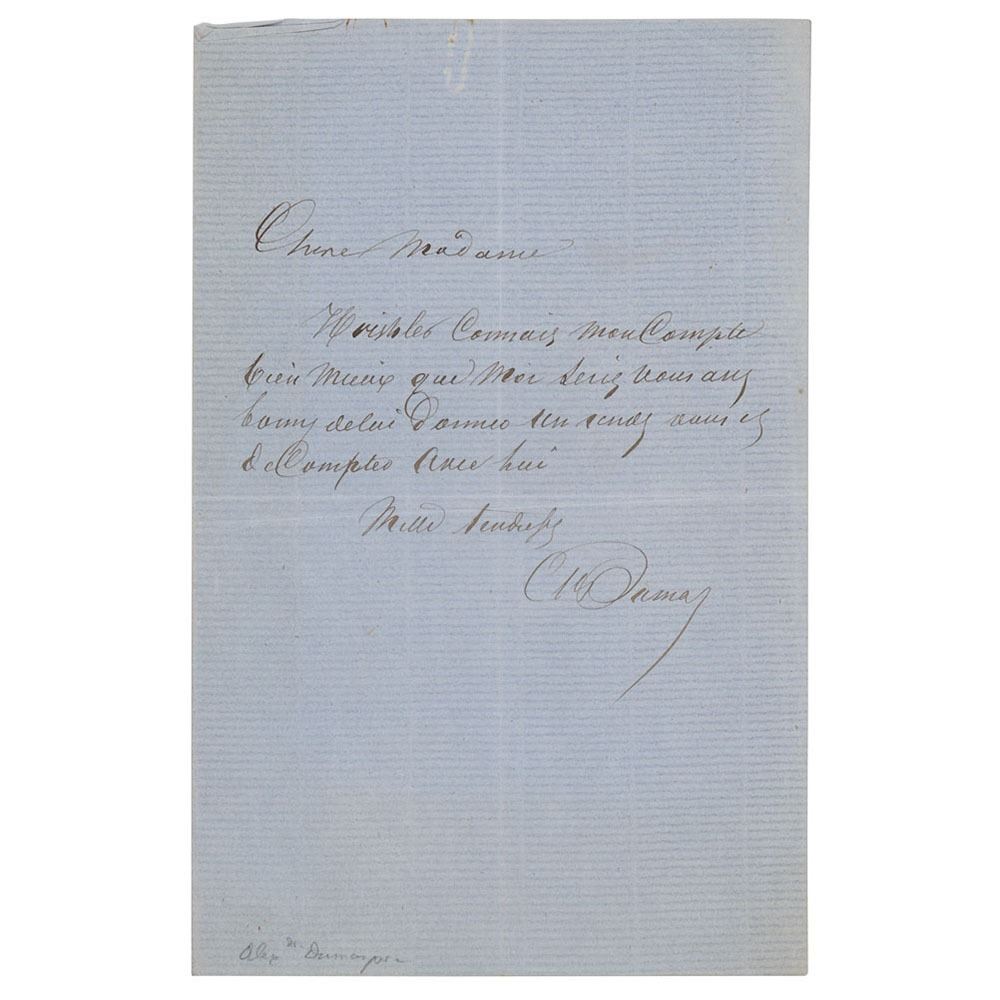 Chere Madame
connais mon Compte
bien mieux que moi serez vous assez
bonne de lui donner un rendez vous et
de Compter avec lui
Mille tendresses
Alex Dumas
Alex dre Dumas père